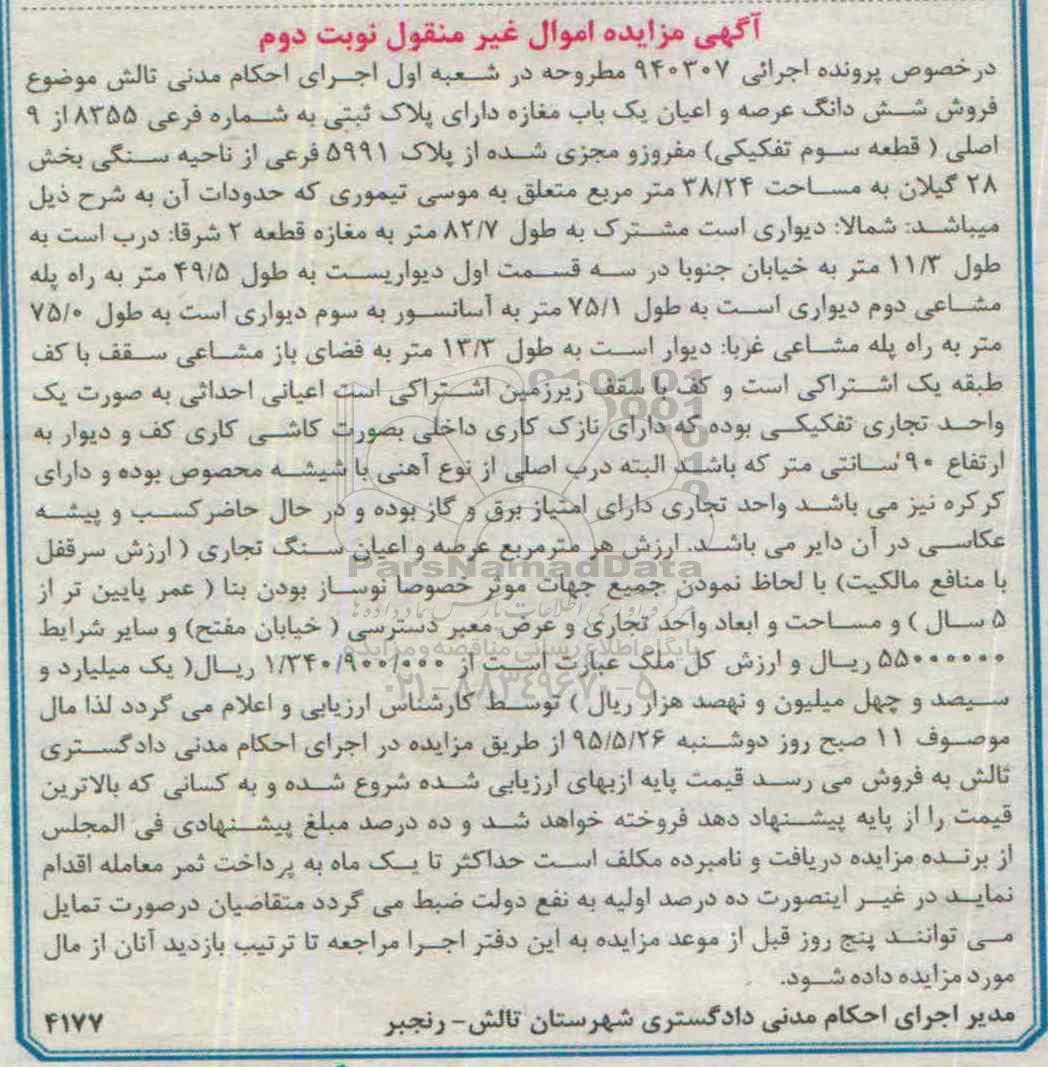 آگهی مزایده اموال غیر منقول نوبت دوم
درخصوص پرونده اجرائی ۹۴۰۳۰۷ مطروحه در شعبه اول اجرای احکام مدنی تالش موضوع
فروش شش دانگ عرصه و اعیان یک باب مغازه دارای پلاک ثبتی به شماره فرعی ۸۳۵۵ از ۹
اصلی ( قطعه سوم تفکیکی) مفروزو مجزی شده از پلاک ۵۹۹۱ فرعی از ناحیه سنگی بخش
۲۸ گیلان به مساحت ۳۸/۲۴ متر مربع متعلق به موسی تیموری که حدودات آن به شرح ذیل
میباشد: شمالا: دیواری است مشترک به طول ۸۲/۷ متر به مغازه قطعه ۲ شرقا: درب است به
طول ۱۱/۳ متر به خیابان جنوبا در سه قسمت اول دیواریست به طول ۴۹/۵ متر به راه پله
مشاعی دوم دیواری است به طول ۷۵/۱ متر به آسانسور به سوم دیواری است به طول ۷۵/۰
متر به راه پله مشاعی غربا: دیوار است به طول ۱۳/۳ متر به فضای باز مشاعی سقف با کف
طبقه یک اشتراکی است و کف با سقف زیرزمین اشتراکی است اعیانی احداثی به صورت یک
واحد تجاری تفکیکی بوده که دارای نازک کاری داخلی بصورت کاشی کاری کف و دیوار به
ارتفاع ۹۰ سانتی متر که باشد البته درب اصلی از نوع آهنی با شیشه محصوص بوده و دارای
کرکره نیز می باشد واحد تجاری دارای امتیاز برق و گاز بوده و در حال حاضرکسب و پیشه
عکاسی در آن دایر می باشد. ارزش هر مترمربع عرصه و اعیان سنگ تجاری ( ارزش سرقفل
با منافع مالکیت) با لحاظ نمودن جمیع جهات موثر خصوصا نوساز بودن بنا ( عمر پایین تر از
۵ سال ) و مساحت و ابعاد واحد تجاری و عرض معبر دسترسی ( خیابان مفتح) و سایر شرایط
۵۵۰۰۰۰۰۰ ریال و ارزش کل ملک عبارت است از ۱/۳۴۰/۹۰۰/۰۰۰ ریال( یک میلیارد و
سیصد و چهل میلیون و نهصد هزار ریال ) توسط کارشناس ارزیابی و اعلام می گردد لذا مال
موصوف ۱۱ صبح روز دوشنبه ۹۵/۵/۲۶ از طریق مزایده در اجرای احکام مدنی دادگستری
تالش به فروش می رسد قیمت پایه ازبهای ارزیابی شده شروع شده و به کسانی که بالاترین
قیمت را از پایه پیشنهاد دهد فروخته خواهد شد و ده درصد مبلغ پیشنهادی فی المجلس
از برنده مزایده دریافت و نامبرده مکلف است حداکثر تا یک ماه به پرداخت ثمر معامله اقدام
نماید در غیر اینصورت ده درصد اولیه به نفع دولت ضبط می گردد متقاضیان درصورت تمایل
می توانند پنج روز قبل از موعد مزایده به این دفتر اجرا مراجعه تا ترتیب بازدید آنان از مال
مورد مزایده داده شود.
مدیر اجرای احکام مدنی دادگستری شهرستان تالش- رنجبر ۴۱۷۷
ParsNamadData
پایگاه اطلاع رسانی مناقصه و مزایده
۰۲۱-۸۸۳۴۹۶۷۰-۵